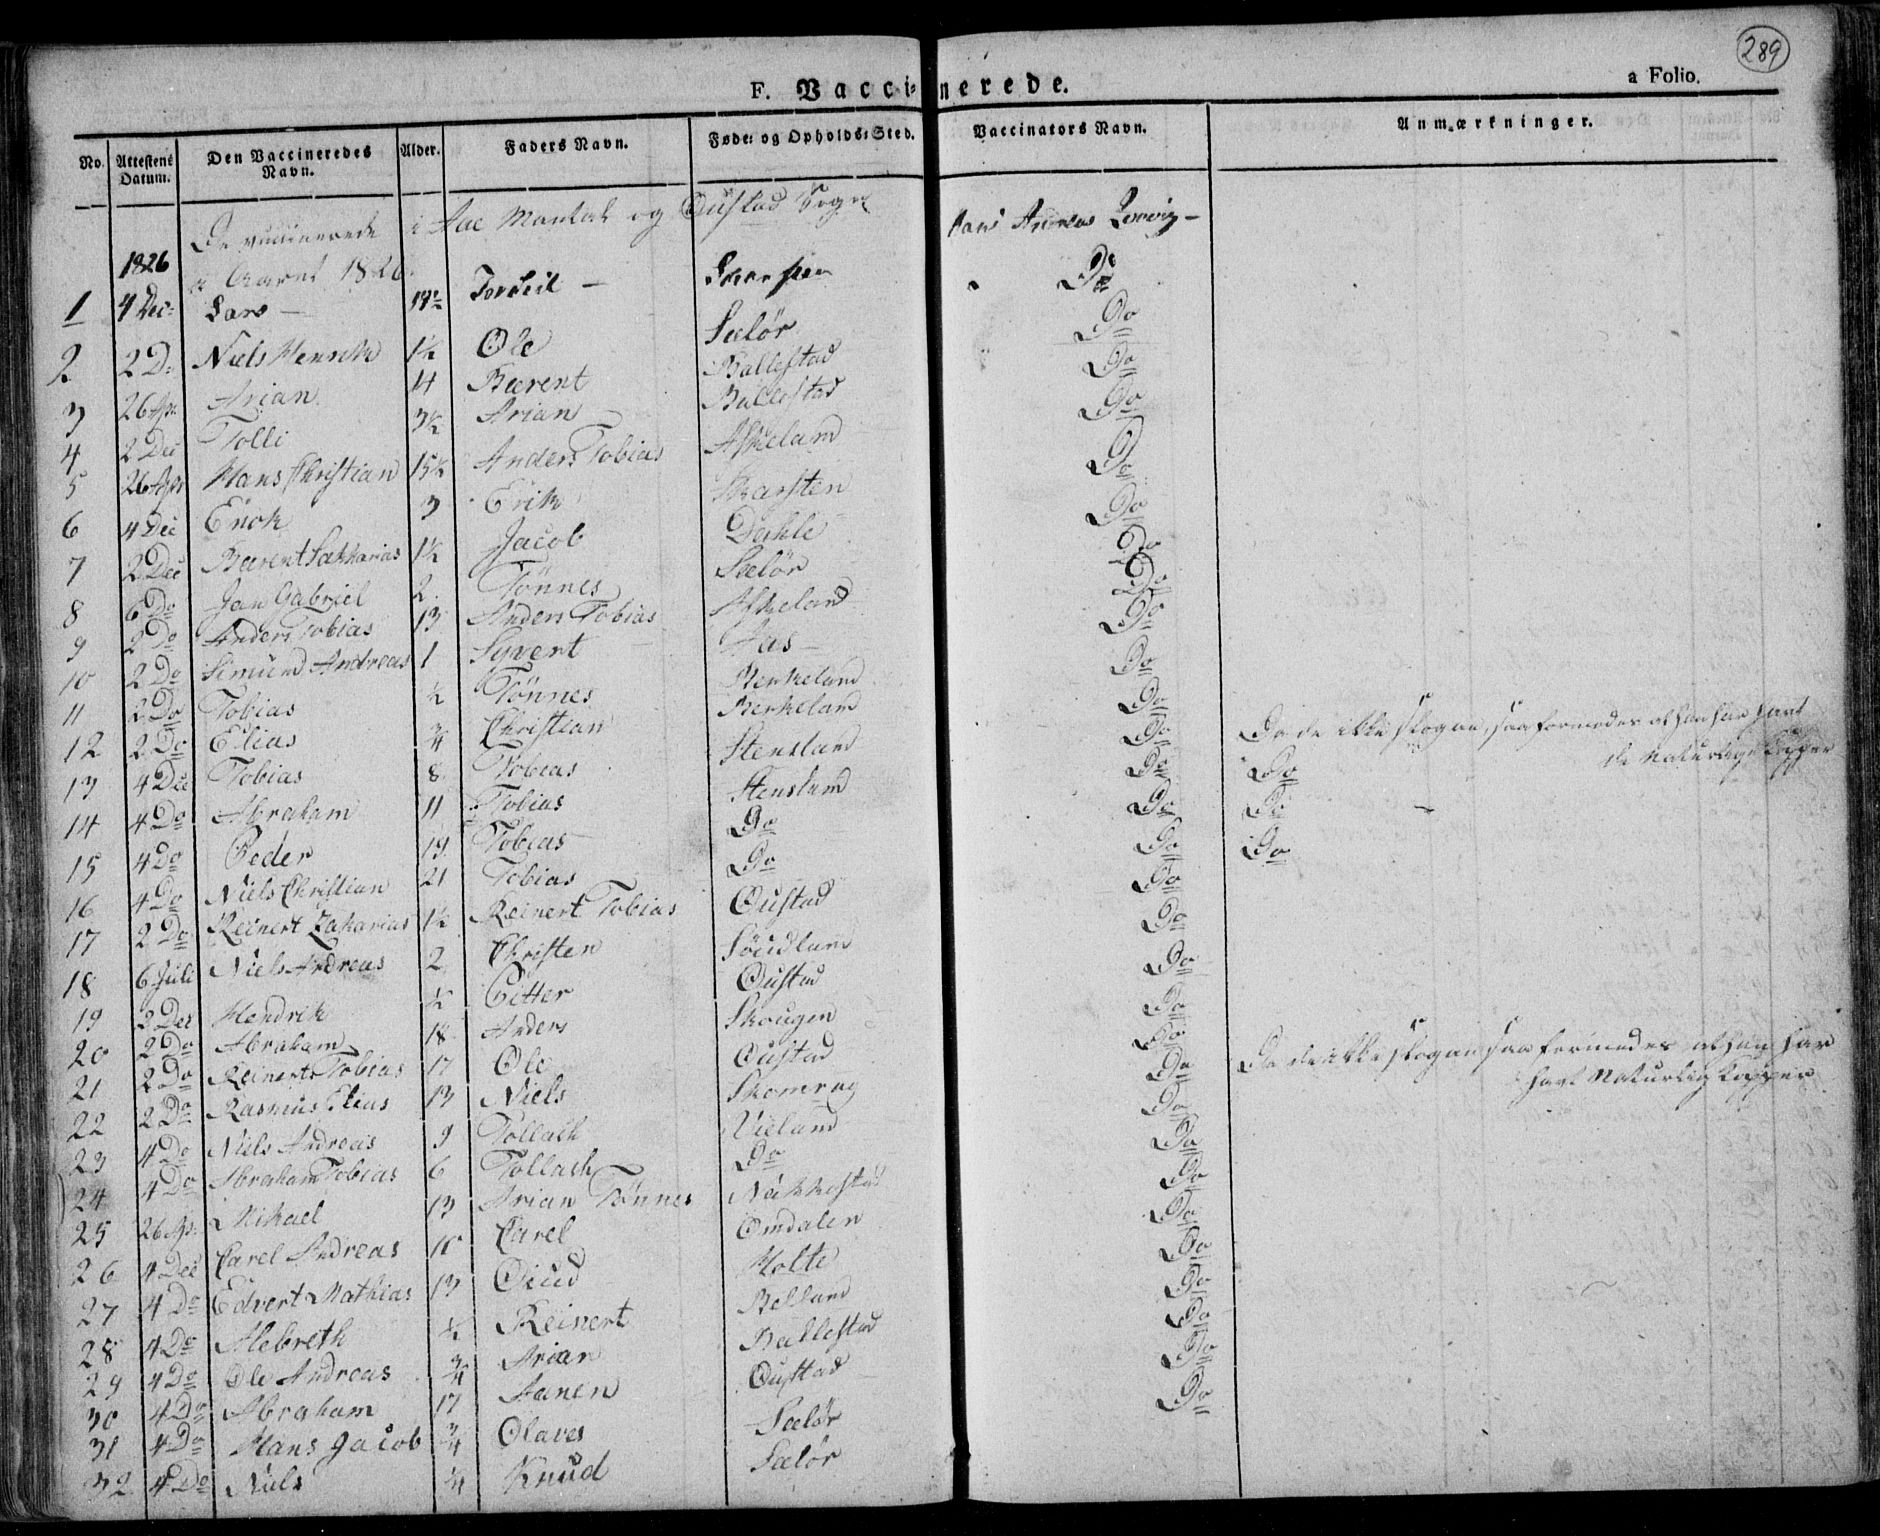 289
F. Vaccinerede.
a Folio.
No. Attestens Datum. Den Vaccineredes Navn. Alder. Faders Navn. Føde- og Opholds-Sted. Vaccinators Navn. Anmærkninger.
De vaccinerede i Aae Mandal og Oustad Sogn
i Aaret 1826.
1826
1 4 Dec: Lars Torkeil Skarsten Do
2 2 Do Niels Henrik 1½ Ole Sælør Do
3 26 Apr. Arian 4 Beerent Ballestad Do
4 2 Dec Tolli 3½ Arian Ballestad Do
5 26 Apr Hans Christian 15½ Anders Tobias Askeland Do
6 4 Dec Enok 3 Erik Skarsten Do
7 2 Dec Beerent Sakkarias 1½ Jacob Dahle Do
8 6 Do Jan Gabriel 2. Tönnes Sælør Do
9 2 Do Anders Tobias 13 Anders Tobias Askeland Do
10 2 Do Simuen Andreas 1 Syvert Aas Do
11 2 Do Tobias ½ Tönnes Berkeland Do
12 2 Do Elias ¾ Christian Berkeland Do Da de ikke slog an, saa formodes at han har havt
de Naturlige Kopper
13 4 Dec Tobias 8 Tobias Stensland Do Do
14 4 Do Abraham 11 Tobias Stensland Do Do
15 4 Do Peder 19 Tobias Do Do Do
16 4 Do Niels Christian 21 Tobias Do Do
17 2 Do Reinert Zakarias 1½ Reinert Tobias Oustad Do
18 6 Juli Niels Andreas 2 Christen Söudland Do
19 2 Dec Hendrik ½ Petter Oustad Do
20 2 Do Abraham 18 Anders Skougen Do
21 2 Do Reinert Tobias 17 Ole Oustad Do Da de ikke slog an saa formodes at han har
havt Naturlig Kopper
22 2 Do Rasmus Elias 13 Niels Skomrag Do
23 4 Do Niels Andreas 9 Tollach Vieland Do
24 4 Do Abraham Tobias 6 Tollach Do Do
25 26 Apr. Mikael 13 Arian Tönnes Nökkestad Do
26 4 Dec Carel Andreas 10 Carel Omdalen Do
27 4 Do Edvert Mathias 13 Oeud Holte Do
28 4 Do Alebreth ½ Reinert Belland Do
29 4 Do Ole Andreas ¾ Arian Ballestad Do
30 4 Do Abraham 17 Aanen Oustad Do
31 4 Do Hans Jacob ¾ Olaves Sælør
32 4 Do Niels ¼ Knud Sælør